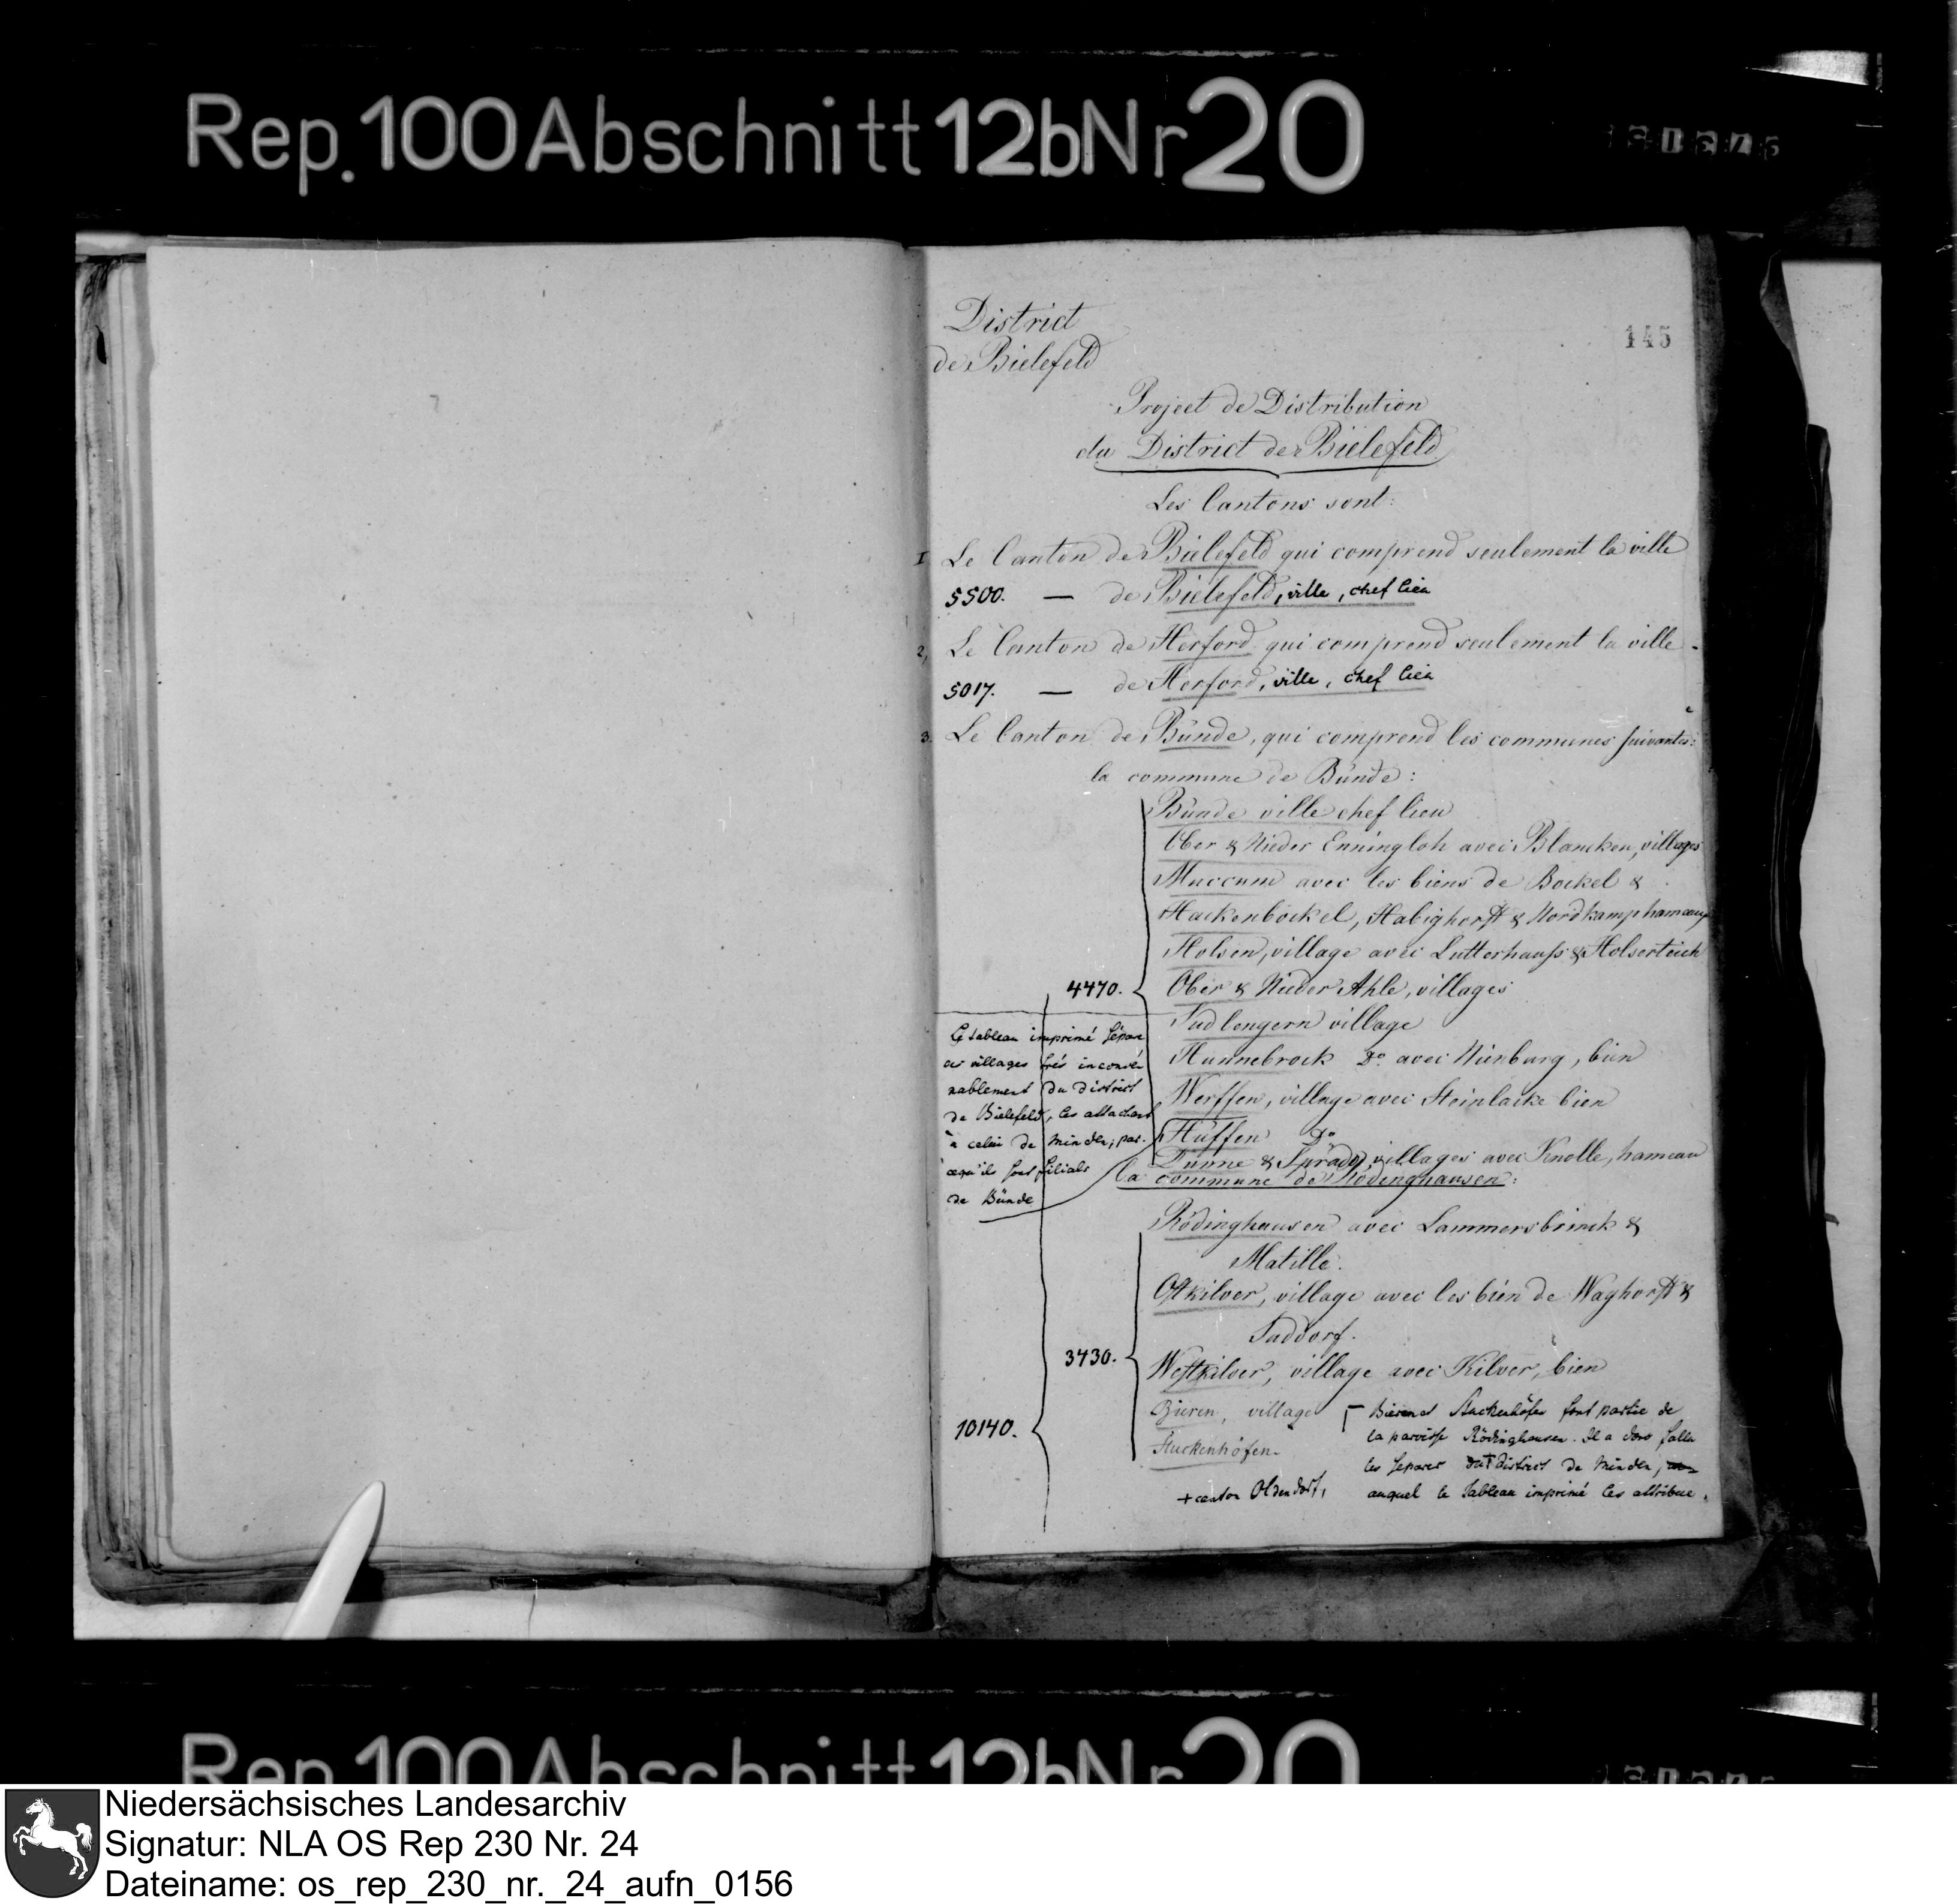 Rep.100Abschnitt12bNr20
145
District
de Bielefeld
Projet de Distribution
du District de Bielefeld
Les Cantons sont:
1 Le Canton de Bielefeld qui comprend seulement la ville
5500. — de Bielefeld, ville, chef lieu
2, Le Canton de Herford qui comprend seulement la ville
5017. — de Herford, ville, chef lieu
3. Le Canton de Bünde, qui comprend les communes suivantes:
la commune de Bünde:
Bünde ville chef lieu
Ober & Nieder Enningloh avec Blancken, villages
Muccum avec les biens de Bockel &
Hackenbockel, Habighorst & Nordkamp hameaux
Holsen, village avec Lutterhauss & Holserteich
4470. Ober & Nieder Ahle, villages
Sudlengern village
Hunnebrock Do avec Nienburg, bien
Werffen, village avec Steinlacke bien
Hüffen Do
Dünne & Spradow, villages avec Knolle, hameau
Ce tableau imprimé sépare
ces villages très inconve-
nablement du district
de Bielefeld, les attachant
à celui de Minden, par-
cequ'ils sont filials
de Bünde
la commune de Rödinghausen:
Rödinghausen avec Lammersbrinck &
Matille.
Ostkilver, village avec les bien de Waghorst &
Saddorf.
3430. Westkilver, village avec Kilver, bien
Bieren, village
Stuckenhöfen.
10140.
Bieren et Stuckenhöfen font partie de
la paroisse Rödinghausen. Il a donc fallu
les separer du + district de Minden,
auquel le tableau imprimé les attribue.
+ canton Oldendorf,
Rep.100Abschnitt12bNr20
Niedersächsisches Landesarchiv
Signatur: NLA OS Rep 230 Nr. 24
Dateiname: os_rep_230_nr._24_aufn_0156